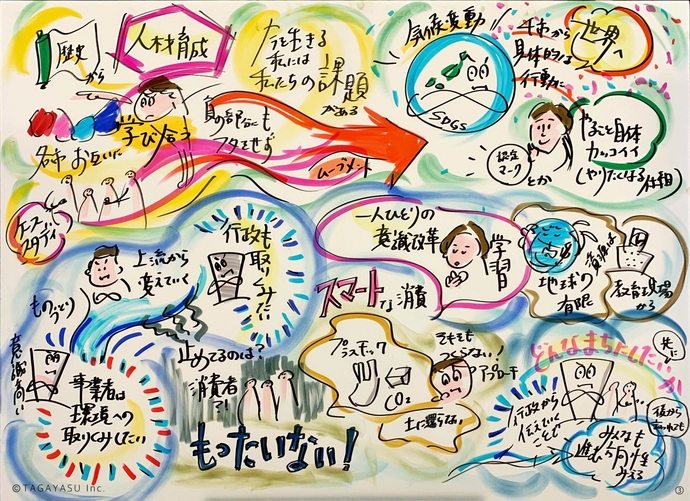 歴史
から
人材育成
今を生きる
私には
私たちの課題
がある
学び合う
名市お互いに
負の部分にも
フタをせず
ムーブメント
ケース
スタディ
気候変動
SDGs
から
具体的な
行動に
世界
へ
認定
マーク
とか
やること自体
カッコイイ
(やりたくなる仕組)
行政も
取りくみだ
上流から
変えていく
ものづくり
意識高い
事業者は
環境への
取りくみしたい
止めてるのは?
消費者
?!
もったいない!
一人ひとりの
意識改革
学習
スマートな消費
資源は
地球の
有限
教育現場
から
プラスチック
CO2
土に還らない
そもそも
つくらない!
アプローチ
どんなまちにしたいか
共に
行政から
伝えていく
ことで
みんなも
進む方向性
みえる
後から
©TAGAYASU Inc.
③